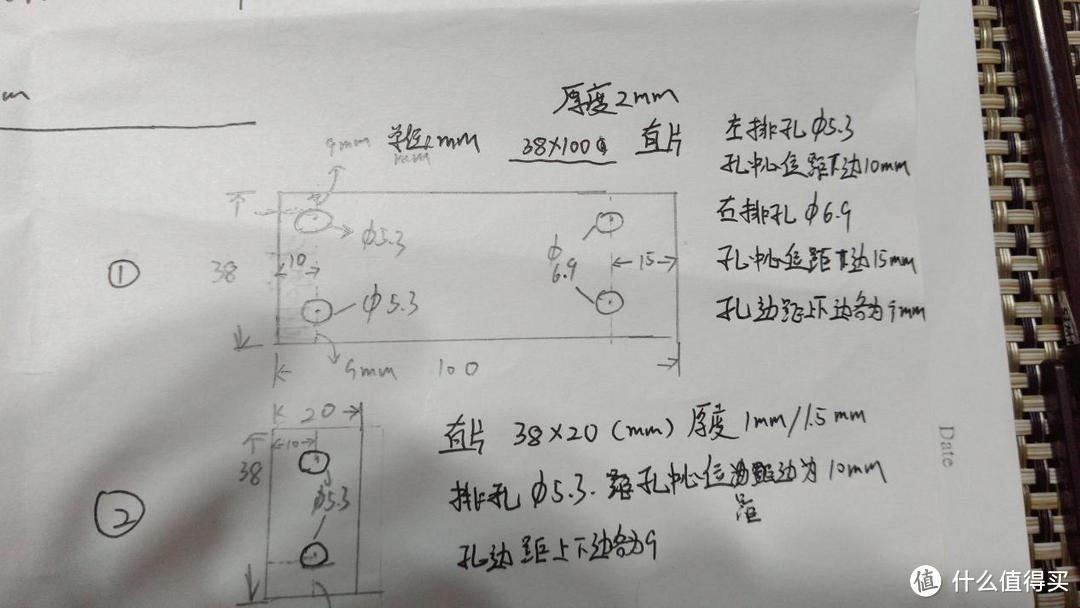 m
厚度2mm
9mm 单位:mm
mm
38×100 直片
左排孔 φ5.3
孔中心位距左边10mm
右排孔 φ6.9
孔中心位距右边15mm
孔边距上下边各为9mm
①
38
10
φ5.3
φ5.3
φ
6.9
15
9mm 100
20
②
38
10
φ5.3
直片 38×20 (mm) 厚度 1mm/1.5mm
排孔 φ5.3. 孔中心位距边为10mm
孔边距上下边各为9
Date
值 什么值得买